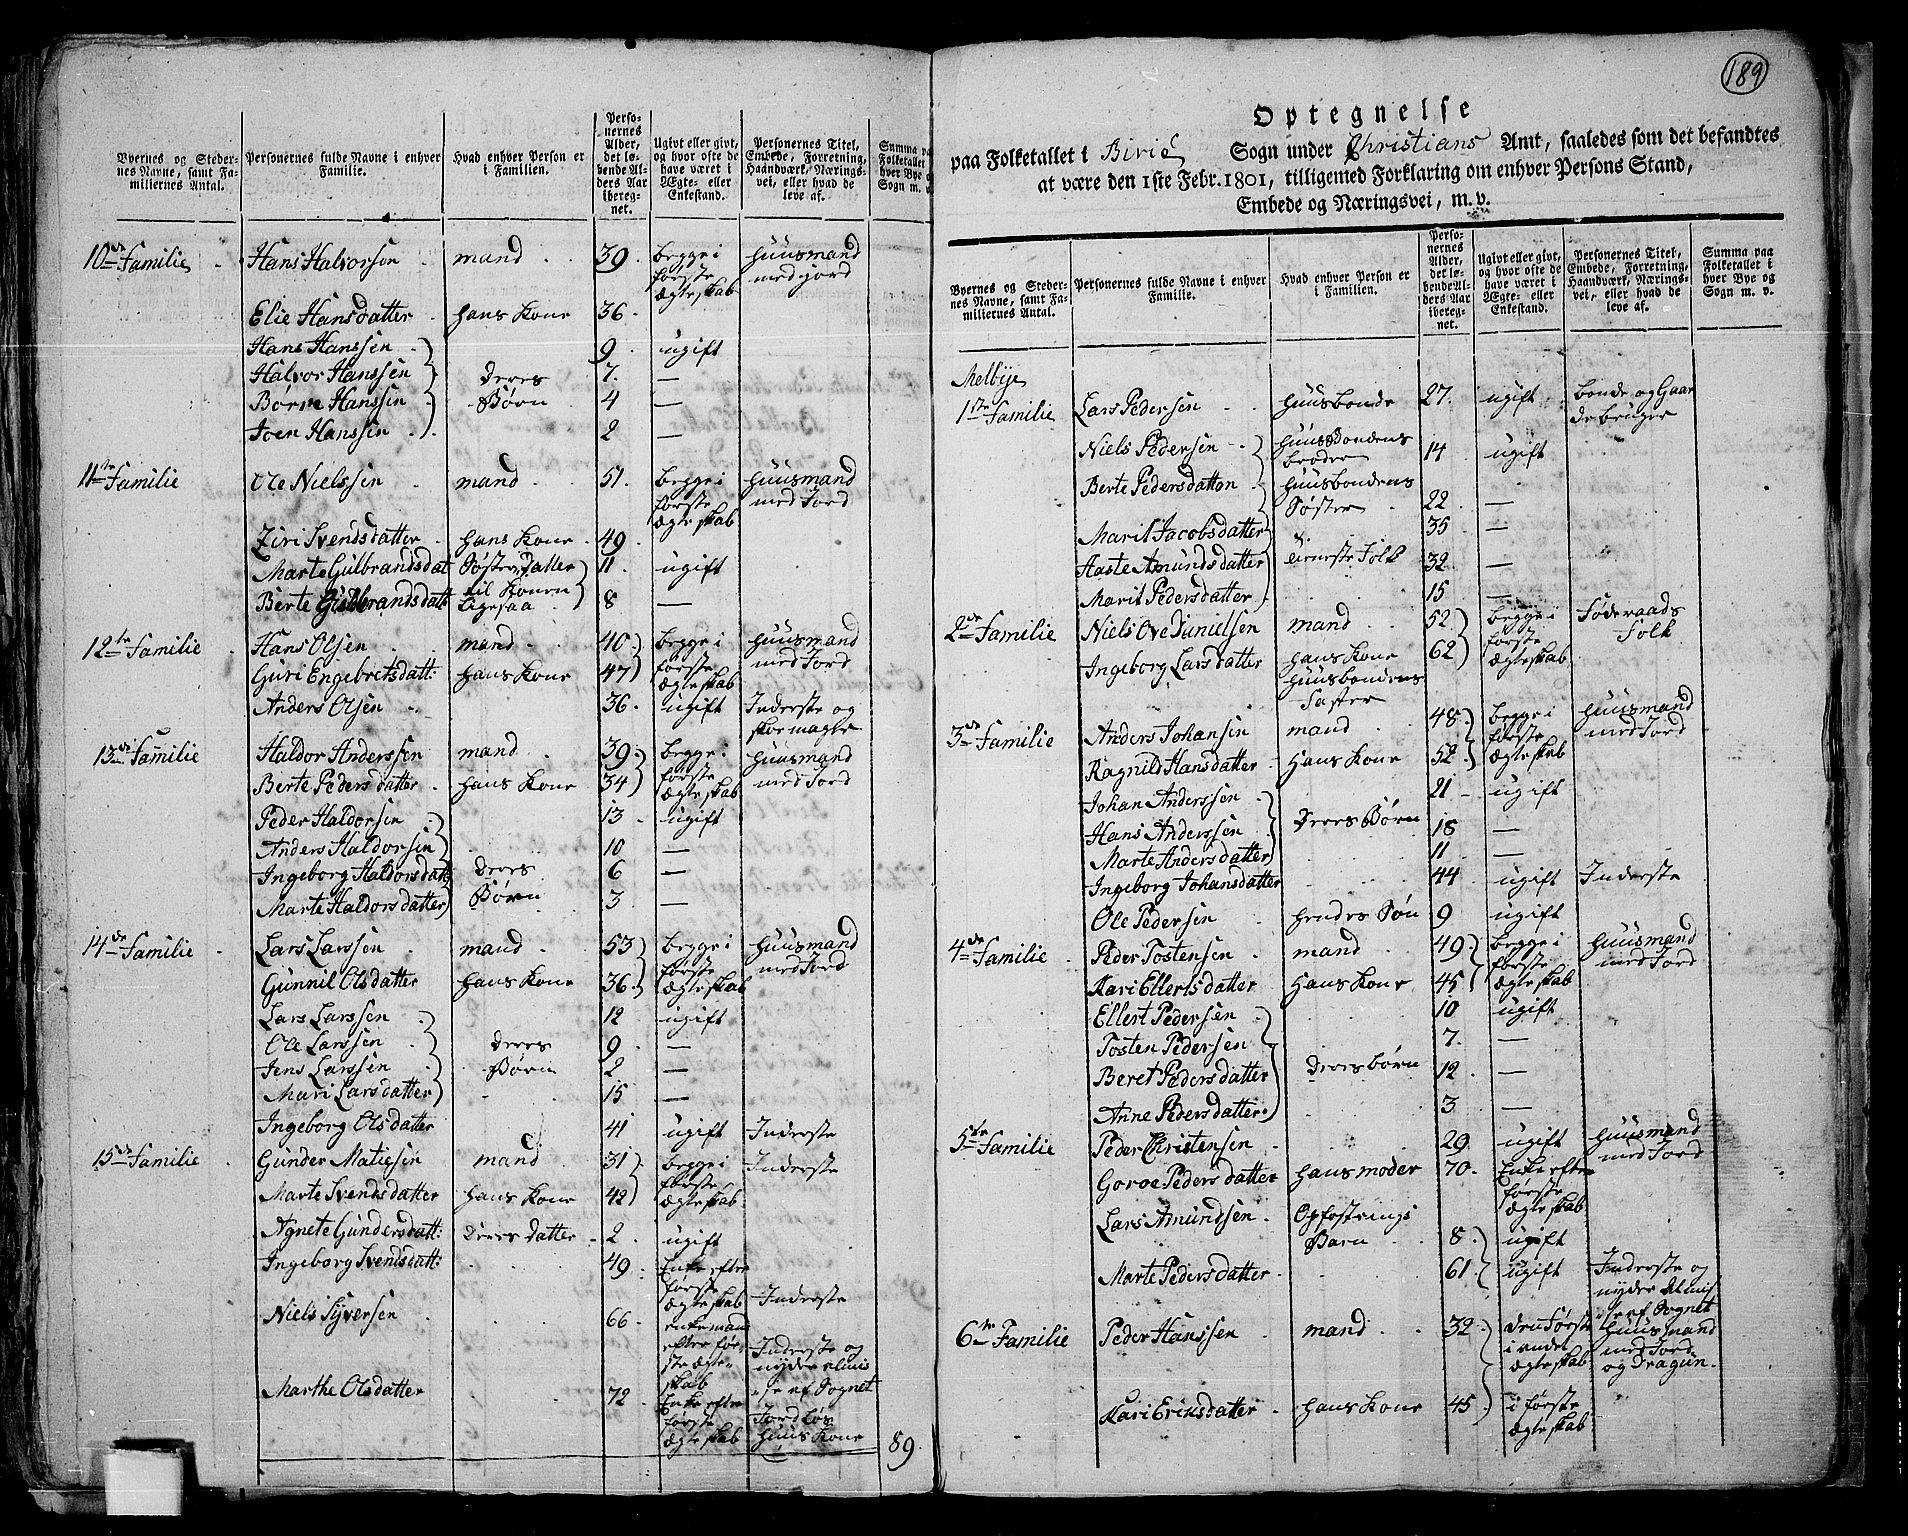 Byernes og Steder-
nes Navne, samt Fa-
miliernes Antal.
Personernes fulde Navne i enhver
Familie.
Hvad enhver Person er
i Familien.
Perso-
nernes
Alder,
det lø-
bende Al-
ders Aar
ibereg-
net.
Ugivt eller givt,
og hvor ofte de
have været i
Ægte- eller
Enkestand.
Personernes Titel,
Embede, Forretning,
Haandværk, Nærings-
vei, eller hvad de
leve af.
Summa paa
Folketallet
hver Bye
Sogn m. v.
10de Familie Hans Halvorsen mand 39 begge i huusmand
første med jord
ægteskab
Elie Hansdatter hans Kone 36
Hans Hanssen 9 ugift
Halvor Hanssen deres 7 —
Børre Hanssen Børn 4 —
Joen Hanssen 2 —
11te Familie Ole Nielssen mand 51 begge i huusmand
første med Jord
ægteskab
Ziri Svendsdatter hans Kone 49
Marte Gulbrandsdat Søster Datter 11 ugift
til Konen
Berte Gulbrandsdatt ligesaa 8 —
12te Familie Hans Olsen mand 40 begge i huusmand
første med Jord
Guri Engebretsdatt: hans Kone 47 ægteskab
Anders Olsen 36 ugift Inderste og
skoemager
13de Familie Haldor Anderssen mand 39 begge i huusmand
første med Jord
Berte Pedersdatter hans Kone 34 ægteskab
Peder Haldorsen 13 ugift
Anders Haldorsen 10 —
Ingeborg Haldorsdatt deres 6 —
Marte Haldorsdatter Børn 3 —
14de Familie Lars Larssen mand 53 begge i huusmand
første med Jord
Gunnil Olsdatter hans Kone 36 ægteskab
Lars Larssen 12 ugift
Ole Larssen deres 9 —
Jens Larssen Børn 2 —
Mari Larsdatter 15 —
Ingeborg Olsdatter 41 ugift Inderste
15de Familie Gunder Matiesen mand 31 begge i Inderste
første
Marte Svendsdatter hans Kone 42 ægteskab
Agnete Gundersdatt: deres datter 2 ugift
Ingeborg Svendsdatt: 49 Enke efter
første
ægteskab Inderste
Niels Syversen 66 enkemand
efter før-
ste ægte- Inderste og
skab nyder Almis
se af Sognet
Marthe Olsdatter 72 Enke efter
første Jordløs
ægteskab huus Kone
89
189
Optegnelse
paa Folketallet i Birid Sogn under Christians Amt, saaledes som det befandtes
at være den 1ste Febr. 1801, tilligemed Forklaring om enhver Persons Stand,
Embede og Næringsvei, m. v.
Byernes og Steder-
nes Navne, samt Fa-
miliernes Antal.
Personernes fulde Navne i enhver
Familie.
Hvad enhver Person er
i Familien.
Perso-
nernes
Alder,
det lø-
bende Al-
ders Aar
ibereg-
net.
Ugivt eller givt,
og hvor ofte de
have været i
Ægte- eller
Enkestand.
Personernes Titel,
Embede, Forretning,
Haandværk, Nærings-
vei, eller hvad de
leve af.
Summa paa
Folketallet i
hver Bye og
Sogn m. v.
Melbye
1ste Familie Lars Pedersen huusbonde 27 ugift bonde og Gaar
debruger
Niels Pedersen huusbondens 14 ugift
broder
Berte Pedersdatter huusbondens
Søster 22 —
Marit Jacobsdatter 35 —
Aaste Amundsdatter tieneste Folk 32 —
Marit Pedersdatter 15 —
2de Familie Niels Ovedanielssen mand 52 begge i Føderaads
første Folk
Ingeborg Larsdatter hans Kone 62 ægteskab
huusbondens
Faster
3de Familie Anders Johansen mand 48 begge i huusmand
første med Jord
Ragnild Hansdatter hans Kone 52 ægteskab
Johan Anderssen 21 ugift
Hans Anderssen Deres Børn 18 —
Marte Andersdatter 11 —
Ingeborg Johansdatter 44 ugift Inderste
Ole Pedersen hendes Søn 9 ugift
4de Familie Peder Tostensen mand 49 begge i huusmand
første med Jord
Kari Ellertsdatter hans Kone 45 ægteskab
Ellert Pedersen 10 ugift
Tosten Pedersen 7 —
Beret Pedersdatter Deres børn 12 —
Anne Pedersdatter 3 —
5te Familie Peder Christensen 29 ugift huusmand
med Jord
Goroe Pedersdatter hans moder 70 Enke efter
første
ægteskab
Lars Amundsen Opfostrings
Barn 8 ugift
Marte Pedersdatter 61 ugift Inderste og
nyder Almis
se af Sognet
6te Familie Peder Hanssen mand 32 den første huusmand
i andet med Jord
ægteskab og Dragun
Kari Eriksdatter hans Kone 45 i første
ægteskab